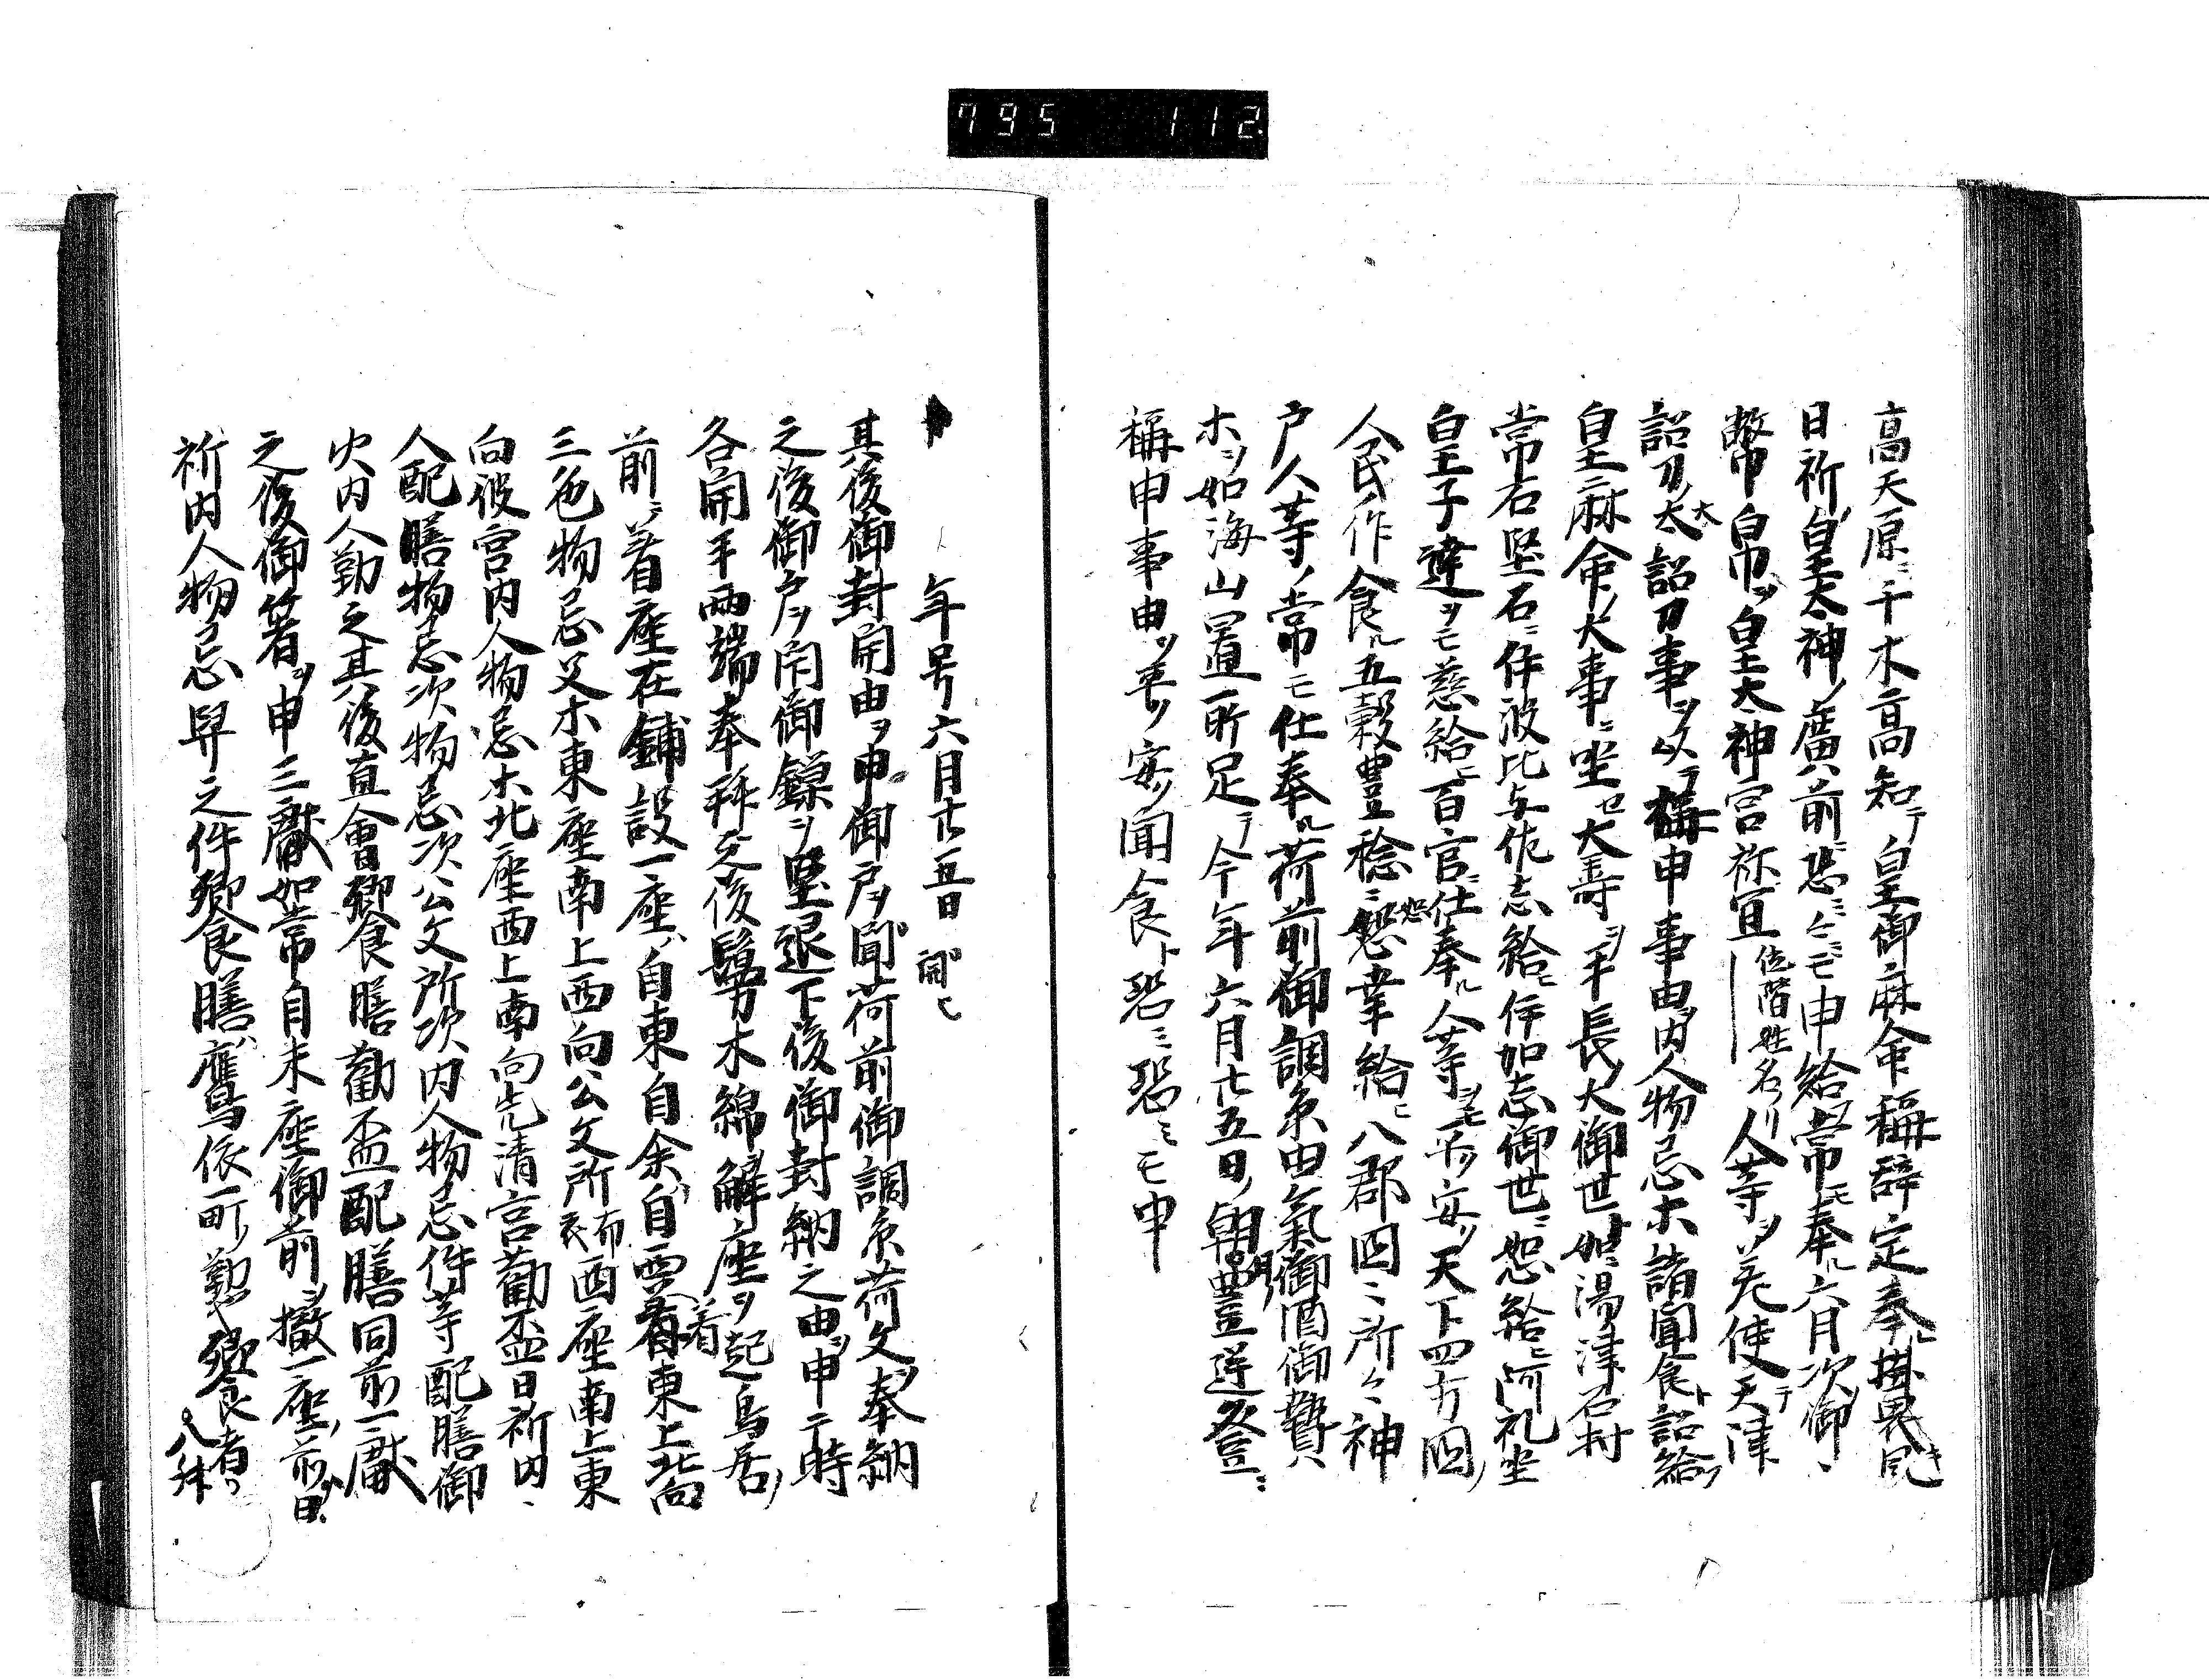 795 112.
高天原ニ千木高知テ皇御麻命稱辞定奉ル掛畏キ
日祈皇太神ノ廣前ニ恐ミ々モ申給常モ奉ル六月次御ノ
幣帛ヲ皇太神宮祢宜位階姓名人等ヲ差使テ天津
詔刀ノ太詔刀事ヲ以テ稱申事由ヲ内人物忌木諸聞食ト詔給フ
皇麻命ノ大事ニ坐セ大寿ヲ手長ノ大御世ト如湯津石村
常石堅石ニ伴波比与佐志給ヒ伴加志御世ニ恕給ヒ阿礼坐
皇子達ヲモ慈給ヒ百官仕奉ル人等ヲモ平ク安ク天下四方国ノ
人民ノ作食ル五穀豊稔ニ恕幸給ヒ八郡国ニ所々ニ神
戸人等ノ常モ仕奉ル荷前御調糸由氣御酒御贄
木ヲ如海山置所足テ今年六月十五日ノ朝豊逆登ニ
稱申事由ヲ平ク安ク聞食ト恐ミ恐ミモ申
年号六月十五日
其後御封開由ヲ申御戸ヲ開荷前御調糸荷文ノ奉納
之後御戸ヲ閇御鎰ヲ堅退下後御封納之由ヲ申二時
各開手両端奉拜之後鬘木綿ヲ解座ヲ起鳥居ノ
前ニ着座在鋪設一座ハ自東自余ハ自西着東上北向
三色物忌父木東座南上西向公文所西座南上東
向彼宮内人物忌木北座西上南向先清宮勸盃日祈内
人配膳物忌次物忌次公文所次内人物忌件等配膳御
火内人勤之其後直會饗食膳勸盃配膳同前一獻
之後御箸ヲ申三獻如常自末座御前ヲ撤一座ノ前ハ日
祈内人物忌舁之件饗食膳ハ鷹鳥依町ノ勤饗食者
八舛